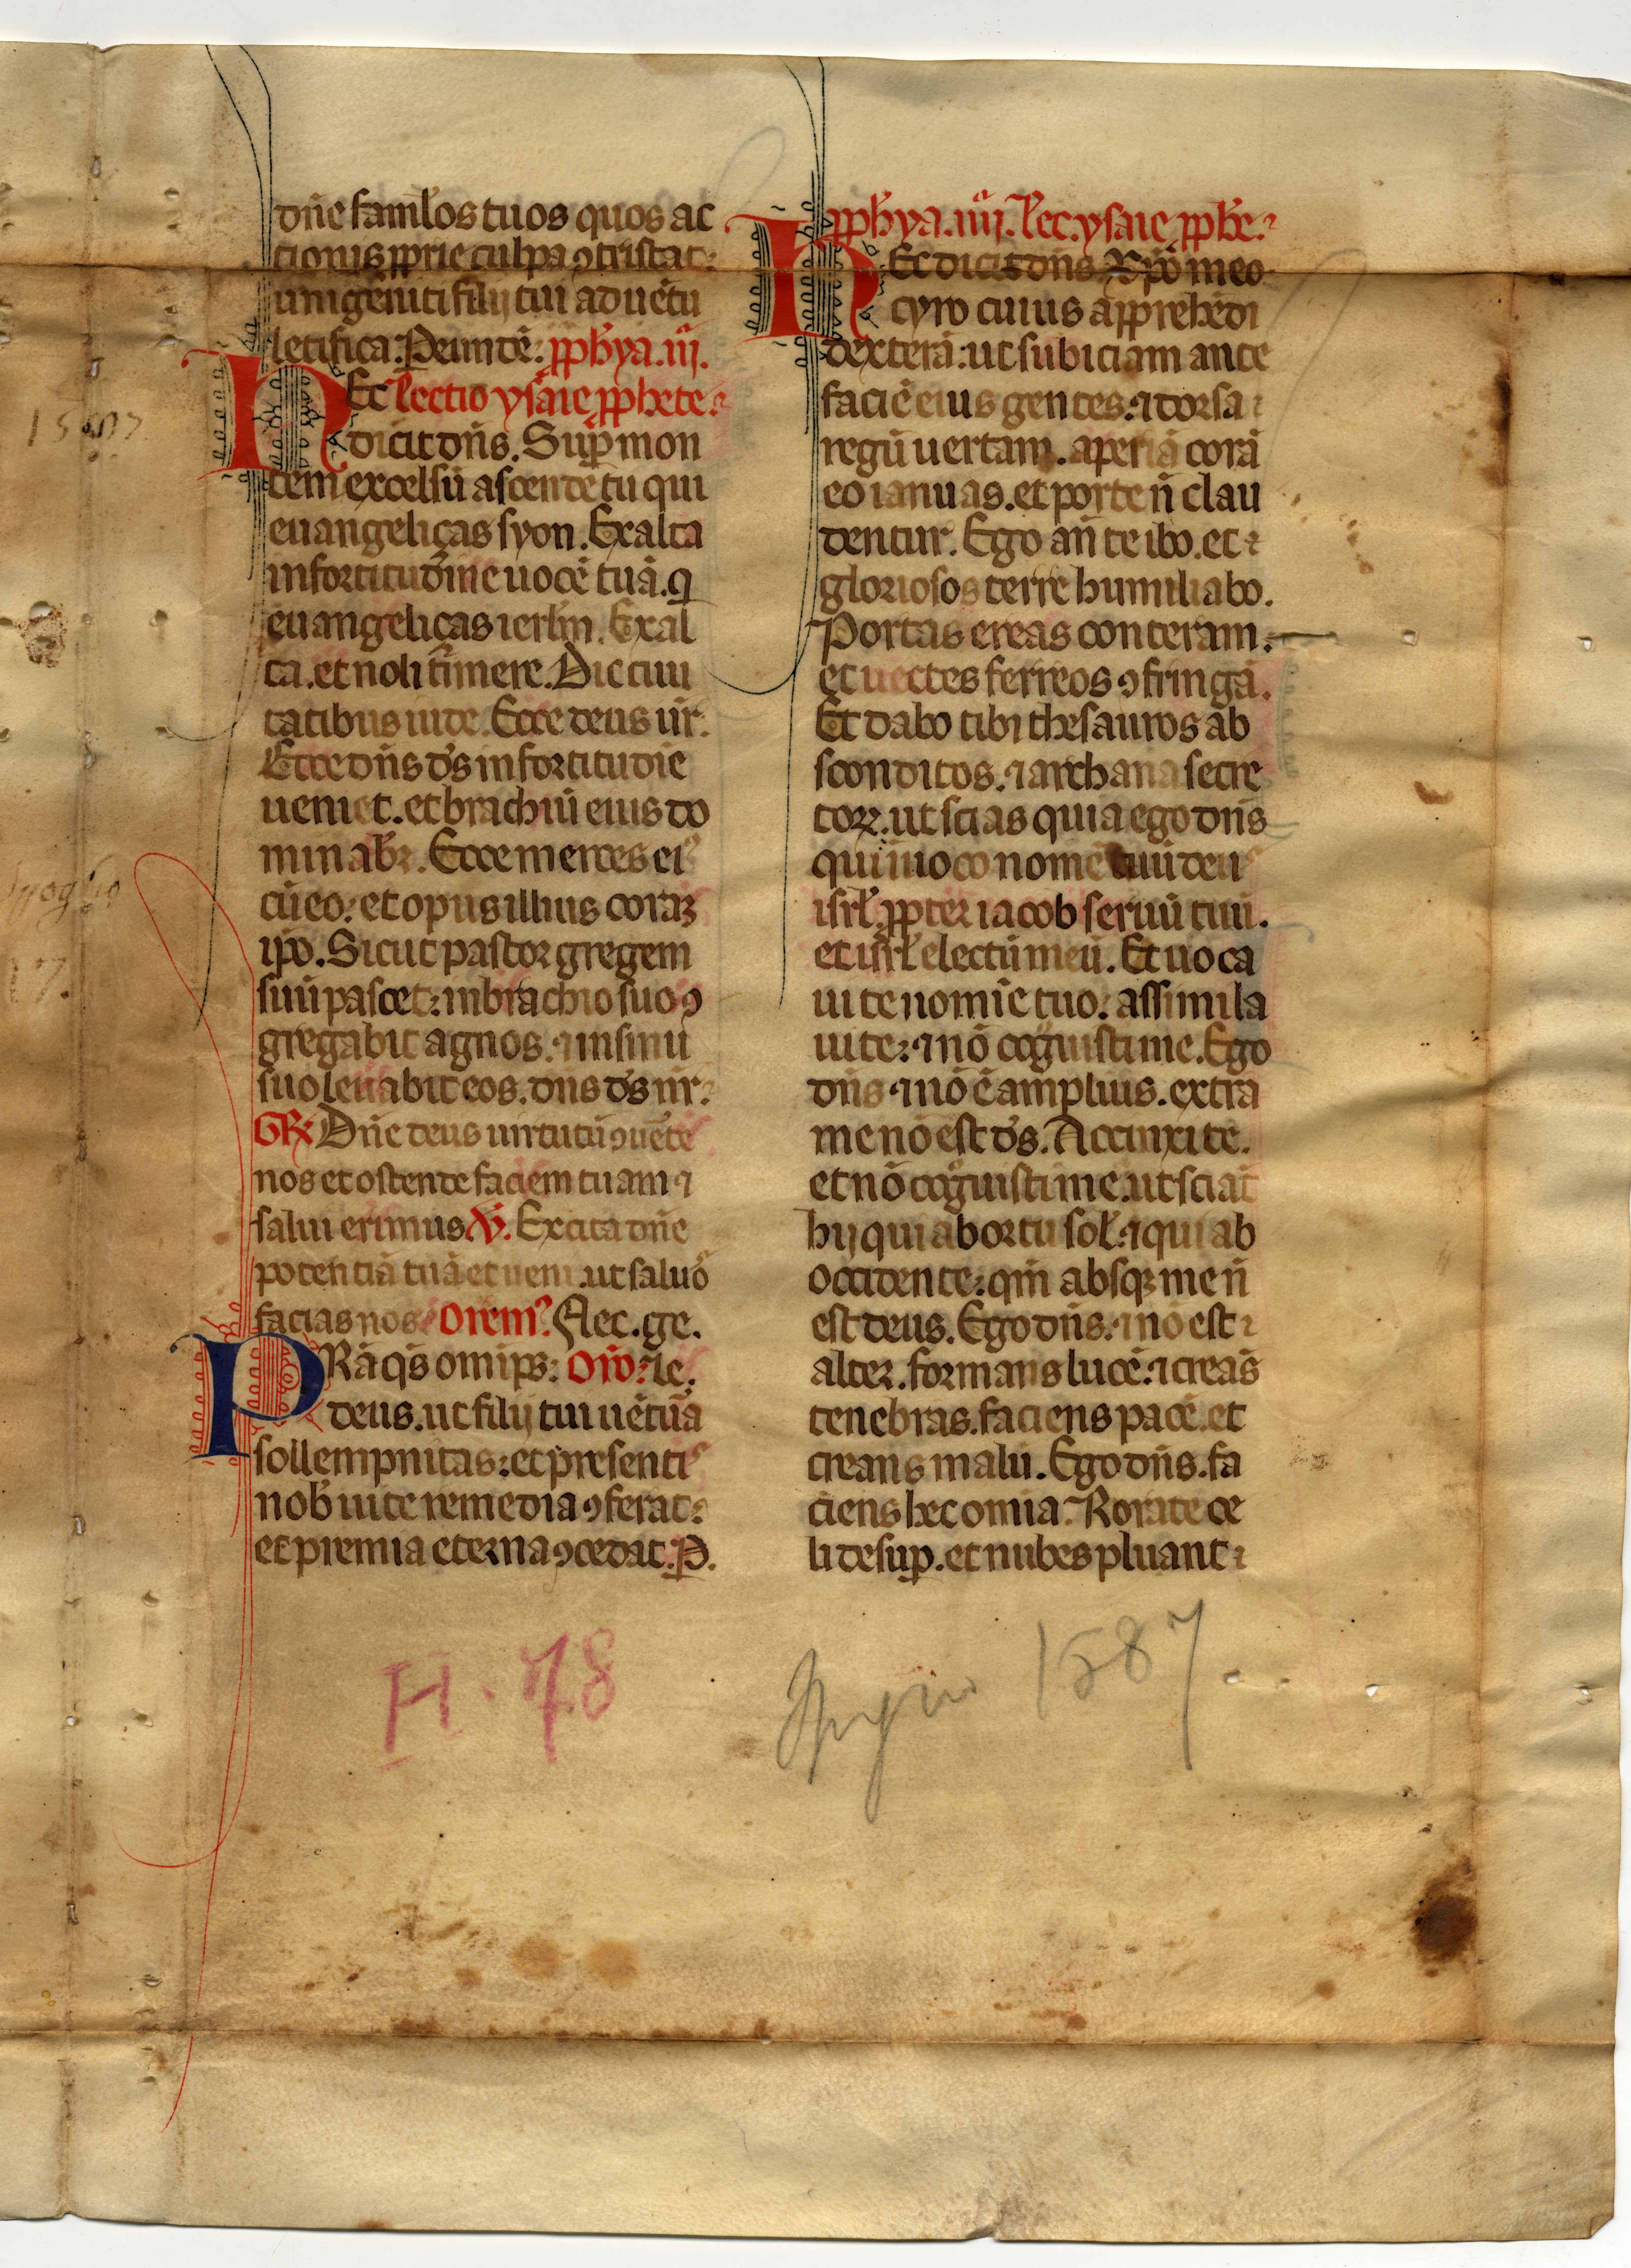 dn̄e famłos tuos quos ac
tionis ꝓprie culpa ꝯtristat:
unigeniti filij tui aduētu
letifica. Per eundē. ꝓph̄ya. iij.
HEc lectio ysaie ꝓphete.
dicit dn̄s. Suꝑ mon
tem excelsū ascende tu qui
euangelicas syon. Exalta
in fortitudīne uocē tuā. q̄
euangelicas ierlm̄. Exal
ta. et noli timere. Dic ciui
tatibus iude. Ecce deus ur̄.
Ecce dn̄s d̄s in fortitudīe
ueniet. et brachiū eius do
minabꝛ̄. Ecce merces eiꝰ
cū eo: et opus illius coraꝫ
ip̄o. Sicut pastor gregem
suū pascet: in brachio suo ꝯ
gregabit agnos. ⁊ in sinu
suo leuabit eos. dn̄s d̄s nr̄.
GR Dn̄e deus uirtutū ꝯuēte
nos et ostende faciem tuam ⁊
salui erimus. V̄. Excita dn̄e
potentiā tuā et ueni. ut saluos
facias nos. Oremꝰ. Flec. ge.
PRā qs̄ omīps: Oīo. le.
deus. ut filij tui uētura
sollempnitas: et presentis
nob̄ uite remedia ꝯferat:
et premia eterna ꝯcedat. P.
ꝓph̄ya. iiij. lec. ysaie ꝓphe.
HEc dicit dn̄s xp̄o meo
cyro cuius apprehēdi
dexterā: ut subiciam ante
faciē eius gentes. ⁊ dorsa
regū uertam. aperiā corā
eo ianuas. et porte n̄ clau
dentur. Ego an̄ te ibo. et
gloriosos terre humiliabo.
Portas ereas conteram.
et uectes ferreos ꝯfringā.
Et dabo tibi thesauros ab
sconditos. ⁊ archana secre
toꝝ. ut scias quia ego dn̄s
qui uoco nomē tuū deus
isrł. ꝓpter iacob seruū tuū.
et isrł electū meū. Et uoca
ui te nomīe tuo: assimila
ui te: ⁊ nō cognuisti me. Ego
dn̄s ⁊ nō ē amplius. extra
me nō est d̄s. Accinxi te.
et nō cognuisti me. ut sciāt
hij qui ab ortu soł. ⁊ qui ab
occidente: qm̄ absqꝫ me n̄
est deus. Ego dn̄s. ⁊ nō est
alter. formans lucē. ⁊ creās
tenebras. faciens pacē. et
creans malū. Ego dn̄s. fa
ciens hec omīa. Rorate ce
li desuꝑ. et nubes pluant
H. 78
1587